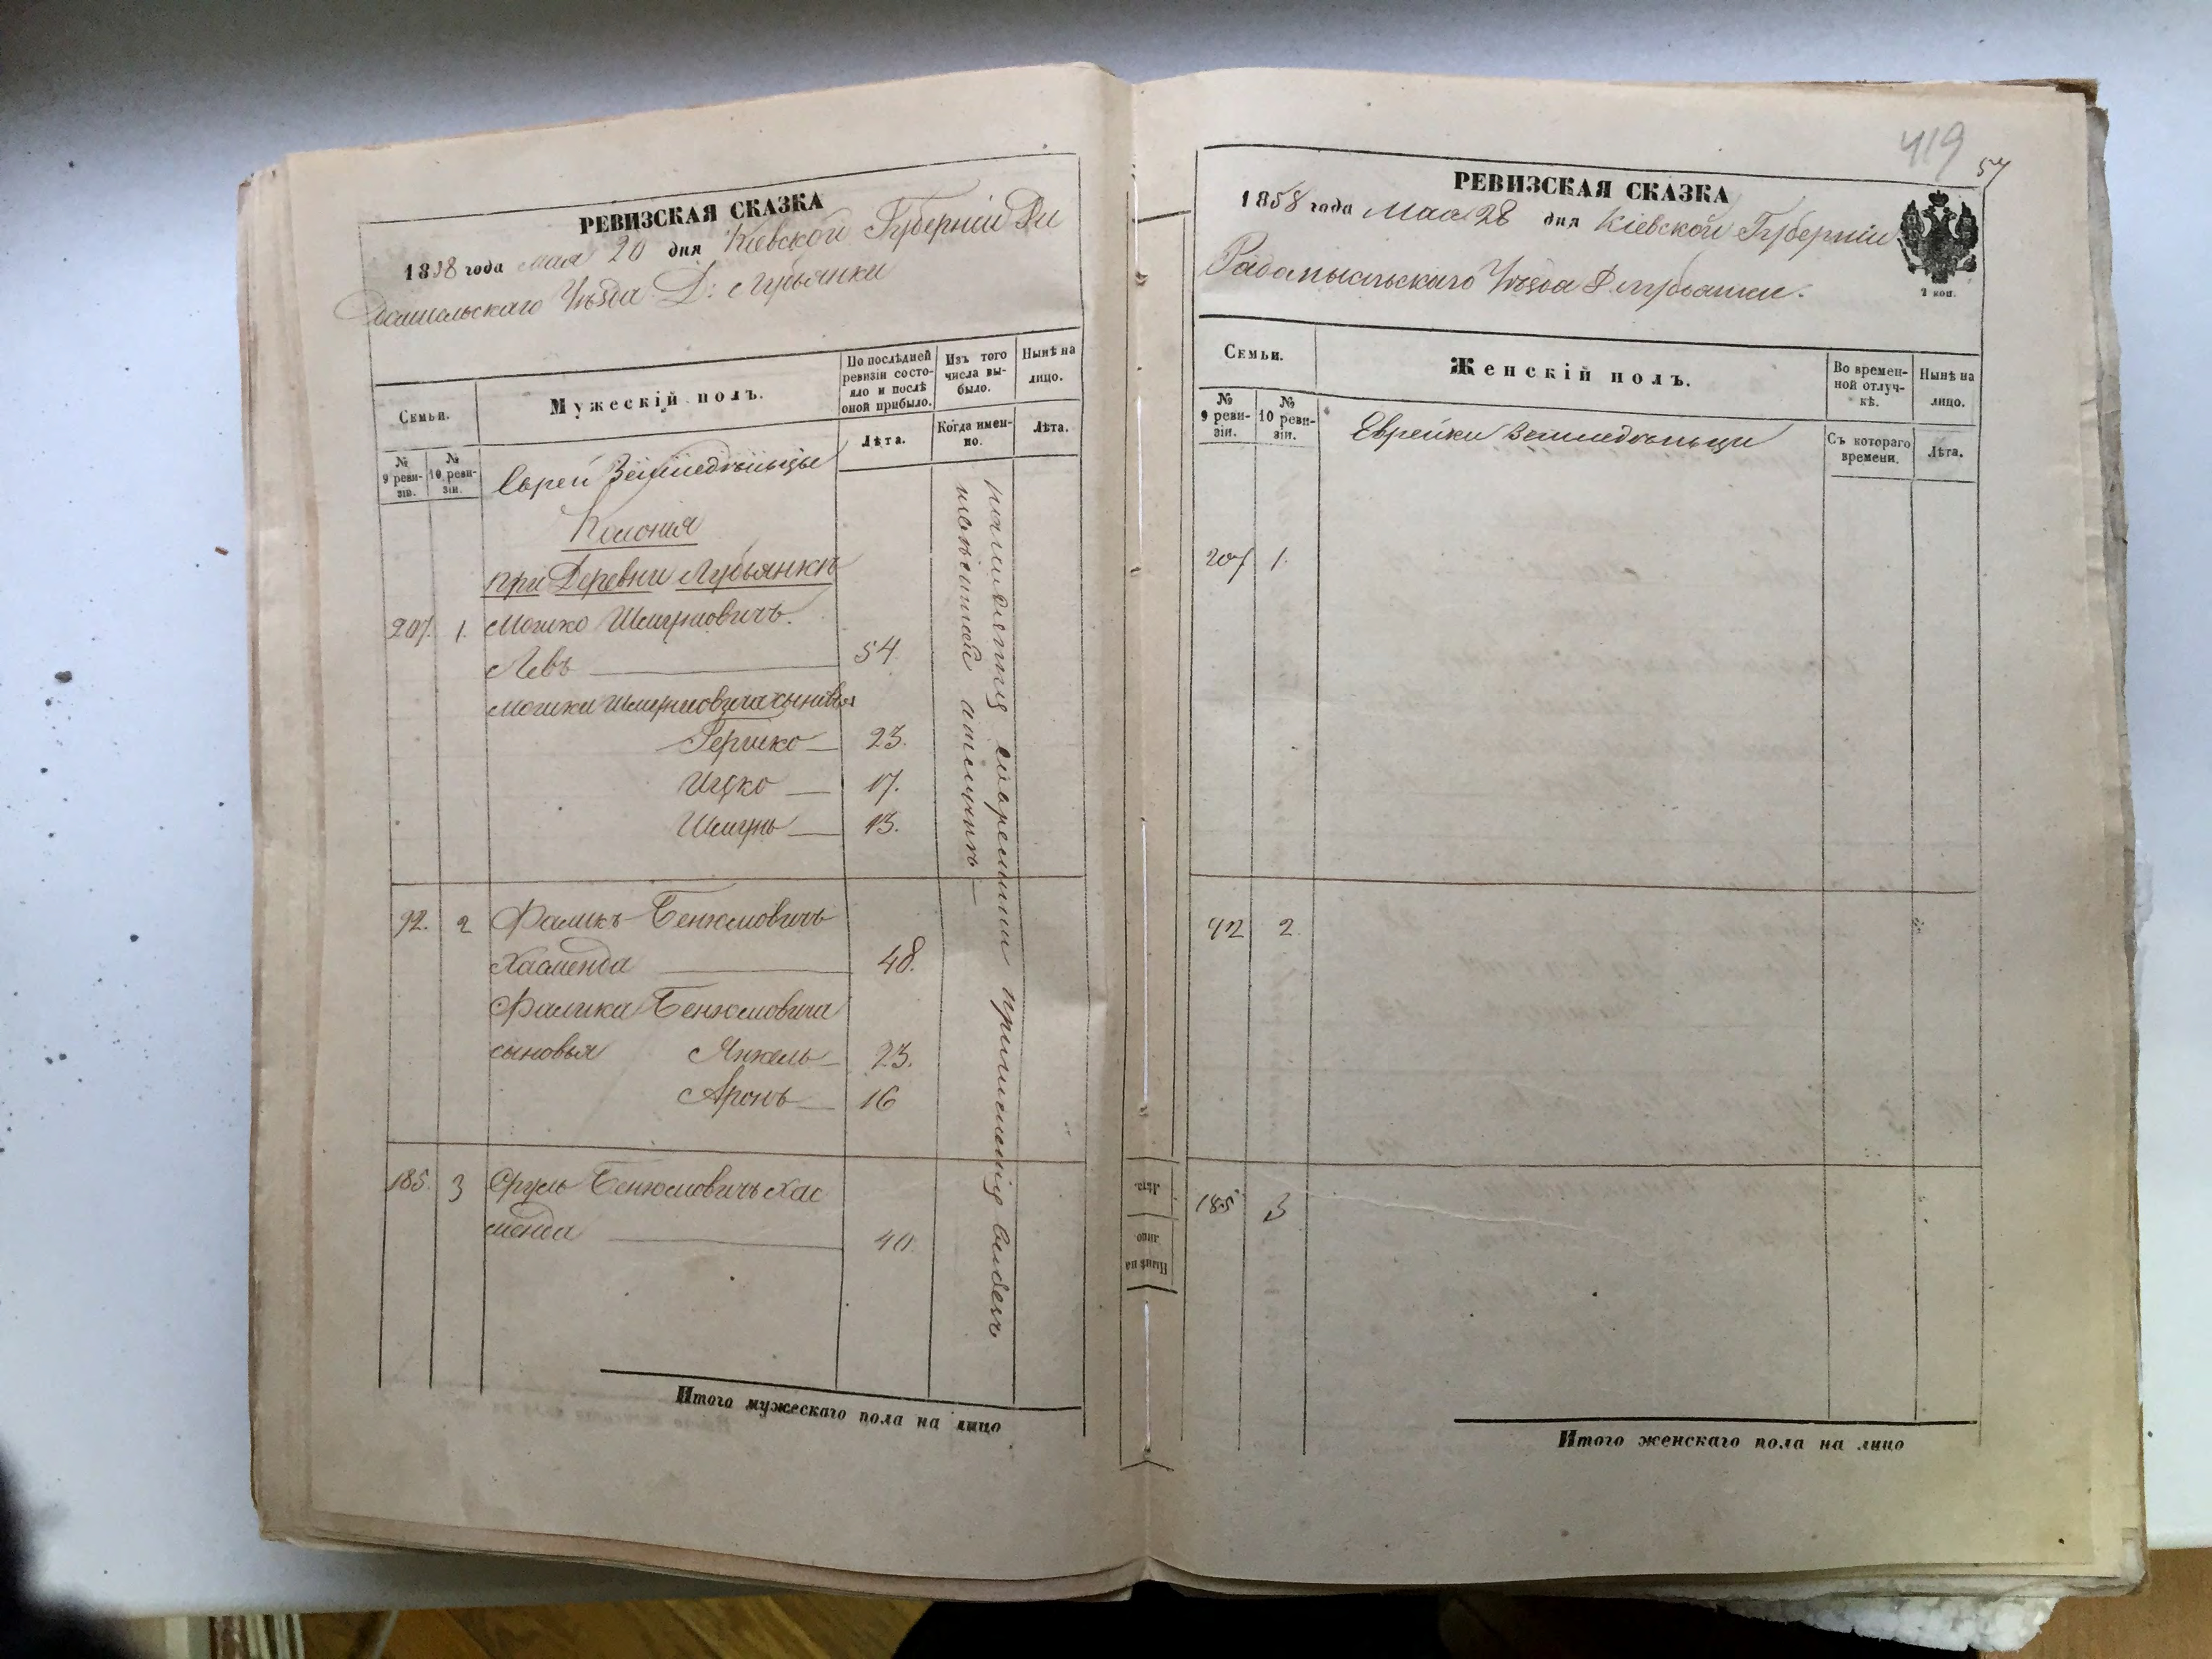 РЕВИЗСКАЯ СКАЗКА
1858 года мая 20 дня Кіевской Губерніи Ра
домысльскаго Уѣзда Д: Лубьянки
Семьи.
Мужескій полъ.
По послѣдней ревизіи состояло и послѣ оной прибыло.
Изъ того числа выбыло.
Нынѣ на лицо.
№ 9 ревизіи.
№ 10 ревизіи.
Лѣта.
Когда именно.
Лѣта.
Евреи Земледѣльцы
Колонія
при Деревни Лубьянкѣ
207. 1. Мошко Шмулiовичъ.
Левъ 54
Мошки Шмулiовича сыновья
Гершко 23.
Ицко 17.
Шмуль 13.
92. 2 Фаликъ Бенюмовичъ
Хасменда 48.
Фалика Бенюмовича
сыновья Янкель 23.
Аронъ 16
185. 3 Сруль Бенюмовичъ Хас
менда 40.
Итого мужескаго пола на лицо
419
57
РЕВИЗСКАЯ СКАЗКА
1858 года Мая 28 дня Кіевской Губерніи
Радомысльскаго Уѣзда Д Лубьянки.
2 коп.
Семьи.
Женскій полъ.
Во временной отлучкѣ.
Нынѣ на лицо.
№ 9 ревизіи.
№ 10 ревизіи.
Съ котораго времени.
Лѣта.
Еврейки Земледѣльцы
207 1.
92 2.
185 3
Лѣта.
Нынѣ на лицо
Итого женскаго пола на лицо